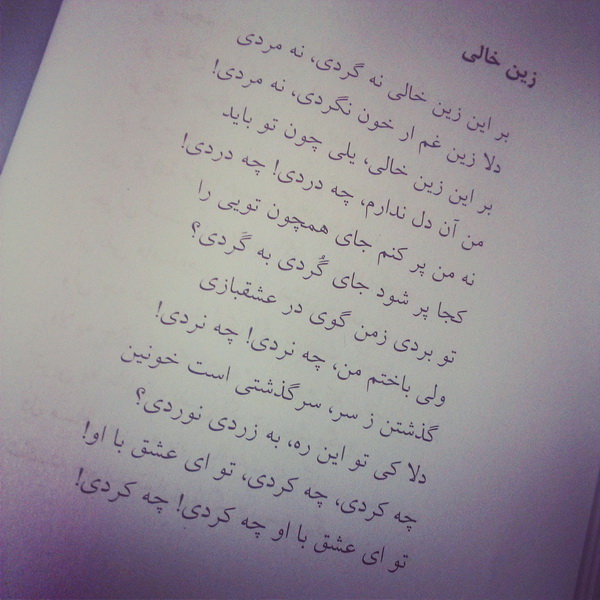 زین خالی
بر این زین خالی نه گردی، نه مردی
دلا زین غم ار خون نگردی، نه مردی!
بر این زین خالی، یلی چون تو باید
من آن دل ندارم، چه دردی! چه دردی!
نه من پر کنم جای همچون تویی را
کجا پر شود جای گُردی به گَردی؟
تو بردی زمن گوی در عشقبازی
ولی باختم من، چه نردی! چه نردی!
گذشتن ز سر، سرگذشتی است خونین
دلا کی تو این ره، به زردی نوردی؟
چه کردی، چه کردی، تو ای عشق با او!
تو ای عشق با او چه کردی! چه کردی!